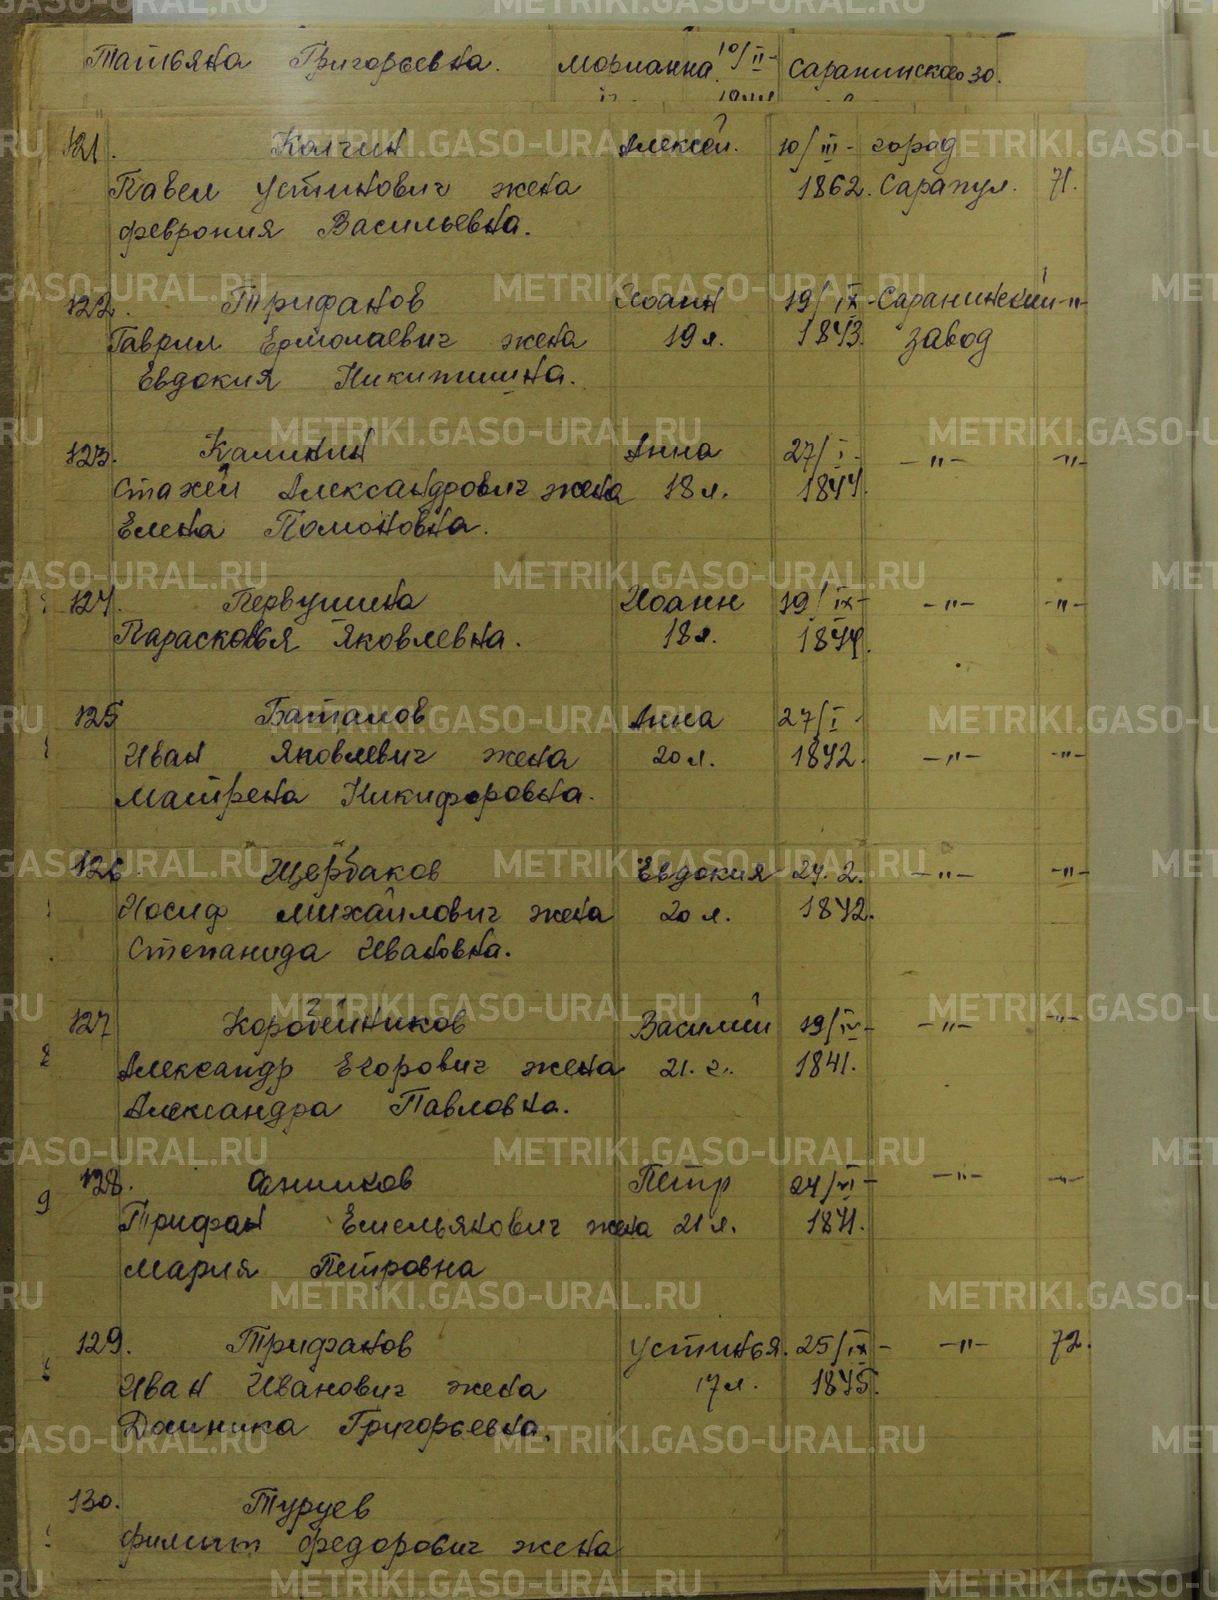 Татьяна Григорьевна. Марианна 10/II- Саранинское 30.
121. Калгин Алексей. 10/III- город
Павел Устинович жена 1862. Сарапул. 71.
феврония Васильевна.
122. Трифанов Иоанн 19/IX- Саранинский -"-
Гаврил Ермолаевич жена 19 л. 1843. завод
Евдокия Никитишна.
123. Калинин Анна 27/I- -"- -"-
Стахей Александрович жена 18 л. 1844.
Елена Помоновна.
124. Первушина Иоанн 19/IX- -"- -"-
Парасковья Яковлевна. 18 л. 1844.
125 Баталов Анна 27/I-
Иван Яковлевич жена 20 л. 1842. -"- -"-
Матрена Никифоровна.
126 Щербаков Евдокия 24.2. -"- -"-
Иосиф михайлович жена 20 л. 1842.
Степанида Ивановна.
127 Коробейников Василий 19/IV- -"- -"-
Александр Егорович жена 21.г. 1841.
Александра Павловна.
128. Ажиков Петр 24/VI- -"- -"-
Трифан Емельянович жена 21 л. 1841.
мария Петровна
129. Трифанов Устинья. 25/IX- -"- 72.
Иван Иванович жена 17 л. 1845.
Домника Григорьевна.
130. Туруев
федорович жена
METRIKI.GASO-URAL.RU